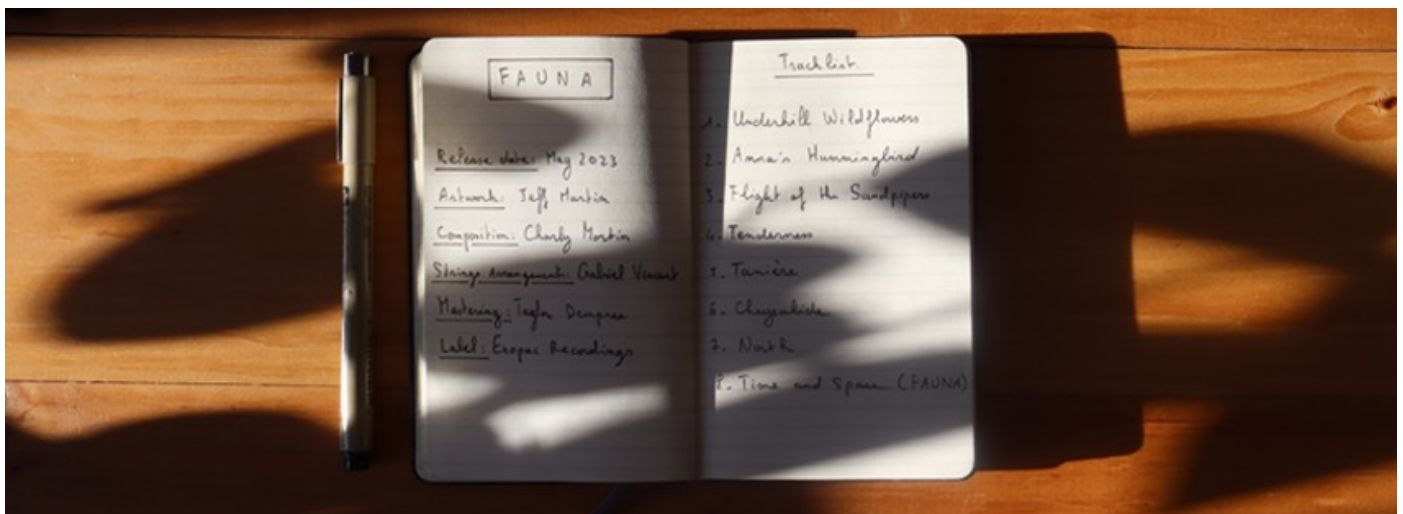 FAUNA
Release date: May 2023
Artwork: Jeff Martin
Composition: Charly Martin
Strings Arrangement: Gabriel Vincent
Mastering: Taylor Deupree
Label: Exopac Recordings
Tracklist
1. Underhill Wildflowers
2. Anna's Hummingbird
3. Flight of the Sandpipers
4. Tenderness
5. Tanière
6. Chrysalide
7. North
8. Time and Space (FAUNA)